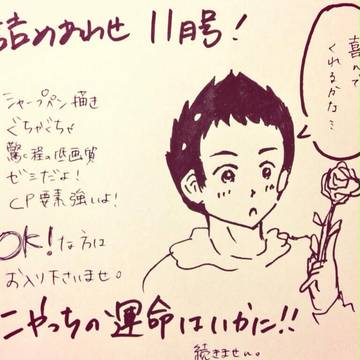 詰めあわせ 11月号!
喜んで
くれるかな…
シャープペン描き
ぐちゃぐちゃ
驚く程の低画質
ゼミだよ!
CP要素強いよ!
OK!な方は
お入り下さいませ。
こやっちの運命はいかに!!
続きません。